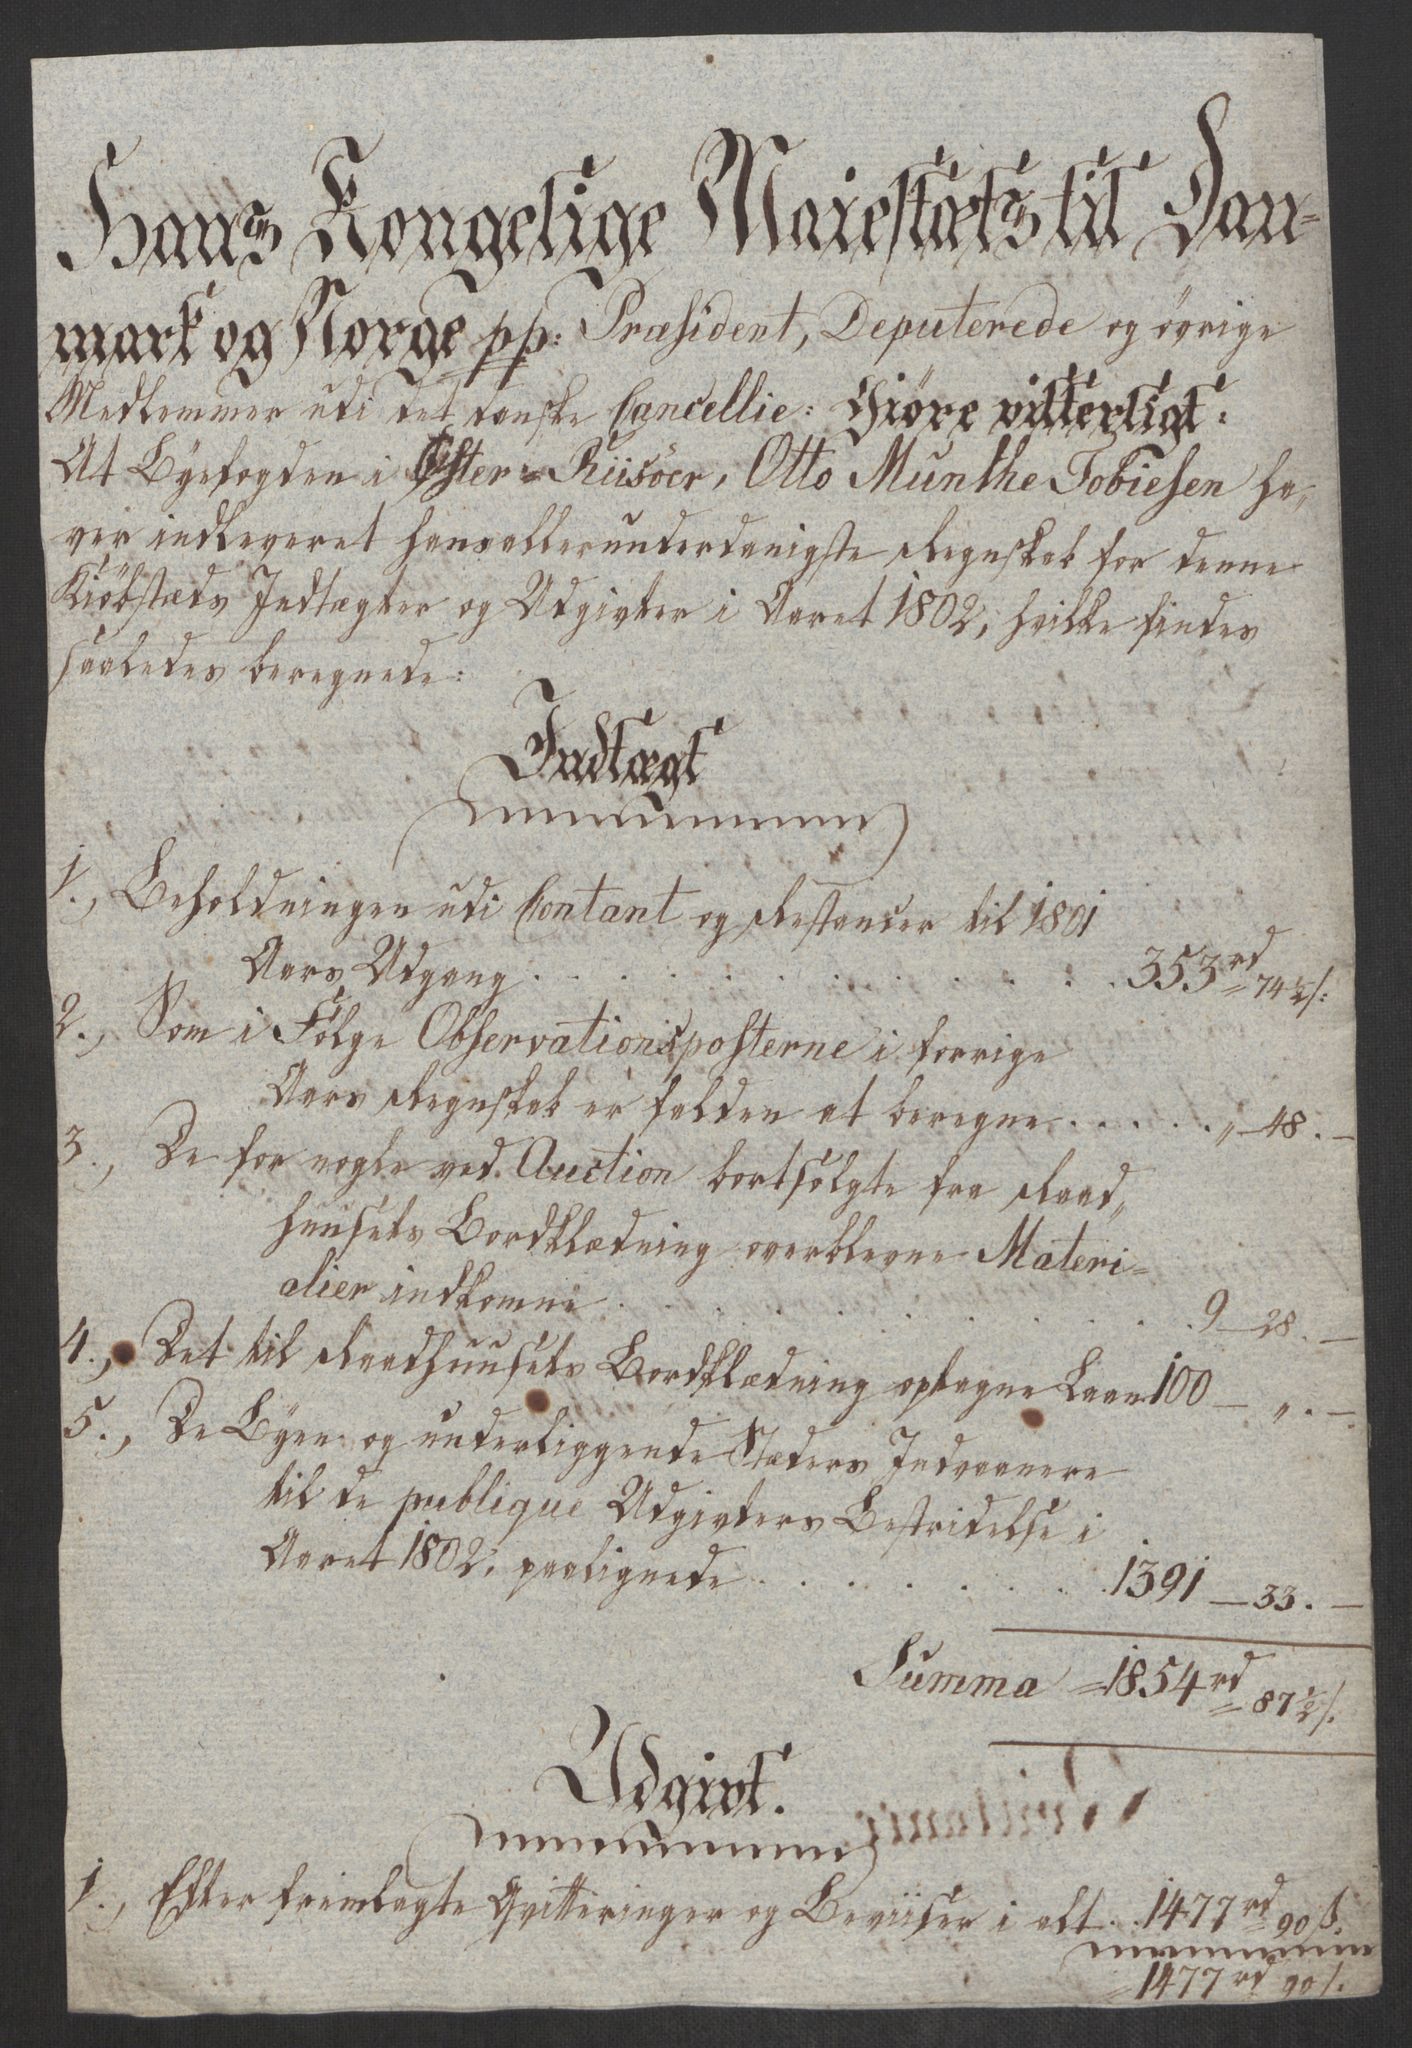 Hans Kongelige Majestæts til Dan-
mark og Norge pp: Præsident, Deputerede og övrige
Medlemmer udi det danske Cancellie: Giöre vitterligt:
At Byefogden i Öster-Riisöer, Otto Munthe Tobiesen ha-
ver indleveret hans allerunderdanigste Regnskab for denne
Kiöbstæds Indtægter og Udgivter i Aaret 1802, hvilke findes
saaledes beregnede:
Indtægt
1., Beholdningen udi Contant og Restancer til 1801
Aars Udgang . . . . . . . . . . 353 rd 74½ s:
2., Som i Fölge Observationsposterne i forrige
Aars Regnskab er falden at beregne . . . . . „ — 48. —
3., De for nogle ved Auction bortsolgte fra Raad„
huusets Bordklædning overblevne Materi-
alier indkomne . . . . . . . . . . 9 — 28. —
4., Det til Raadhuusets Bordklædning optagne Laan 100 — „. —
5., De Byen og underliggende Stæders Indvaanere
til de publique Udgivters Bestridelse i
Aaret 1802, paalignede . . . . . . . 1391 — 33. —
Summa = 1854 rd = 87½ s.
Udgivt.
1., Efter fremlagte Qvitteringer og Beviiser i alt . . 1477 rd 90 s.
= 1477 rd 90 s.